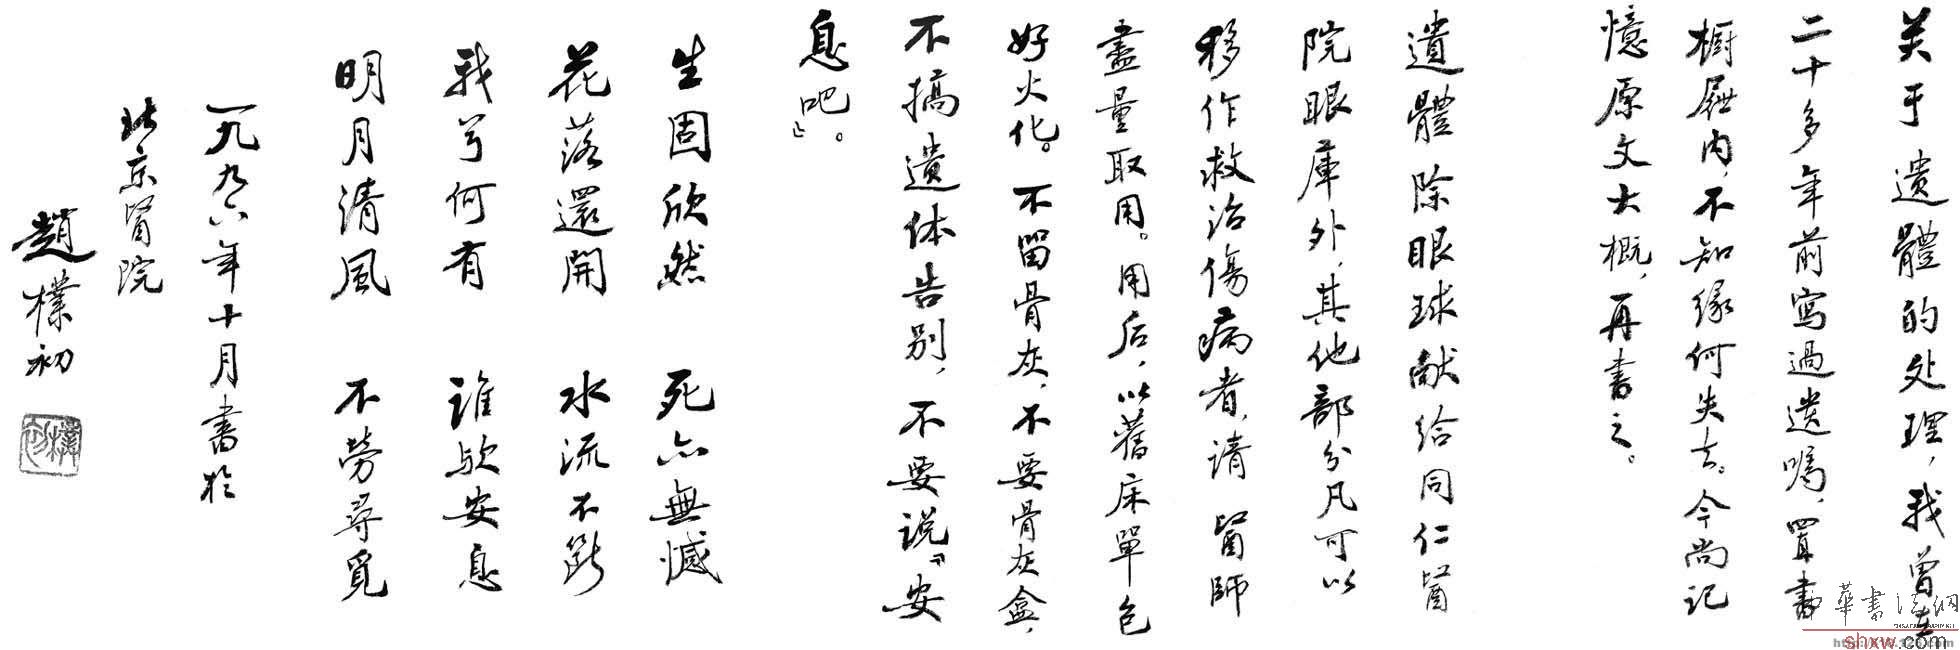 关于遗體的处理，我曾在
二十多年前寫過遗嘱，置書
橱屉内，不知缘何失去。今尚记
憶原文大概，再書之。
遺體除眼球献给同仁醫
院眼庫外，其他部分凡可以
移作救治傷病者，请醫師
盡量取用。用后，以舊床單包
好火化。不留骨灰，不要骨灰盒，
不搞遺体告别，不要说『安
息吧』。
生固欣然 死亦無憾
花落還開 水流不斷
我兮何有 谁歟安息
明月清風 不勞尋覓
一九九六年十月書於
北京醫院
趙樸初
樸初
中華書法網
shxw.com